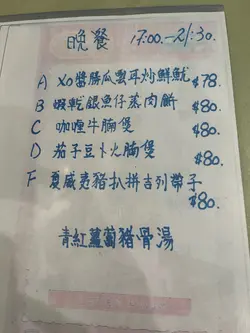 晚餐 17:00-21:30.
A XO醬勝瓜雲耳炒鮮魷 $78.
B 蝦乾銀魚仔蒸肉餅 $80.
C 咖喱牛腩煲 $80.
D 茄子豆卜火腩煲 $80.
F 夏威夷豬扒拼吉列帶子 $80.
青紅蘿蔔豬骨湯